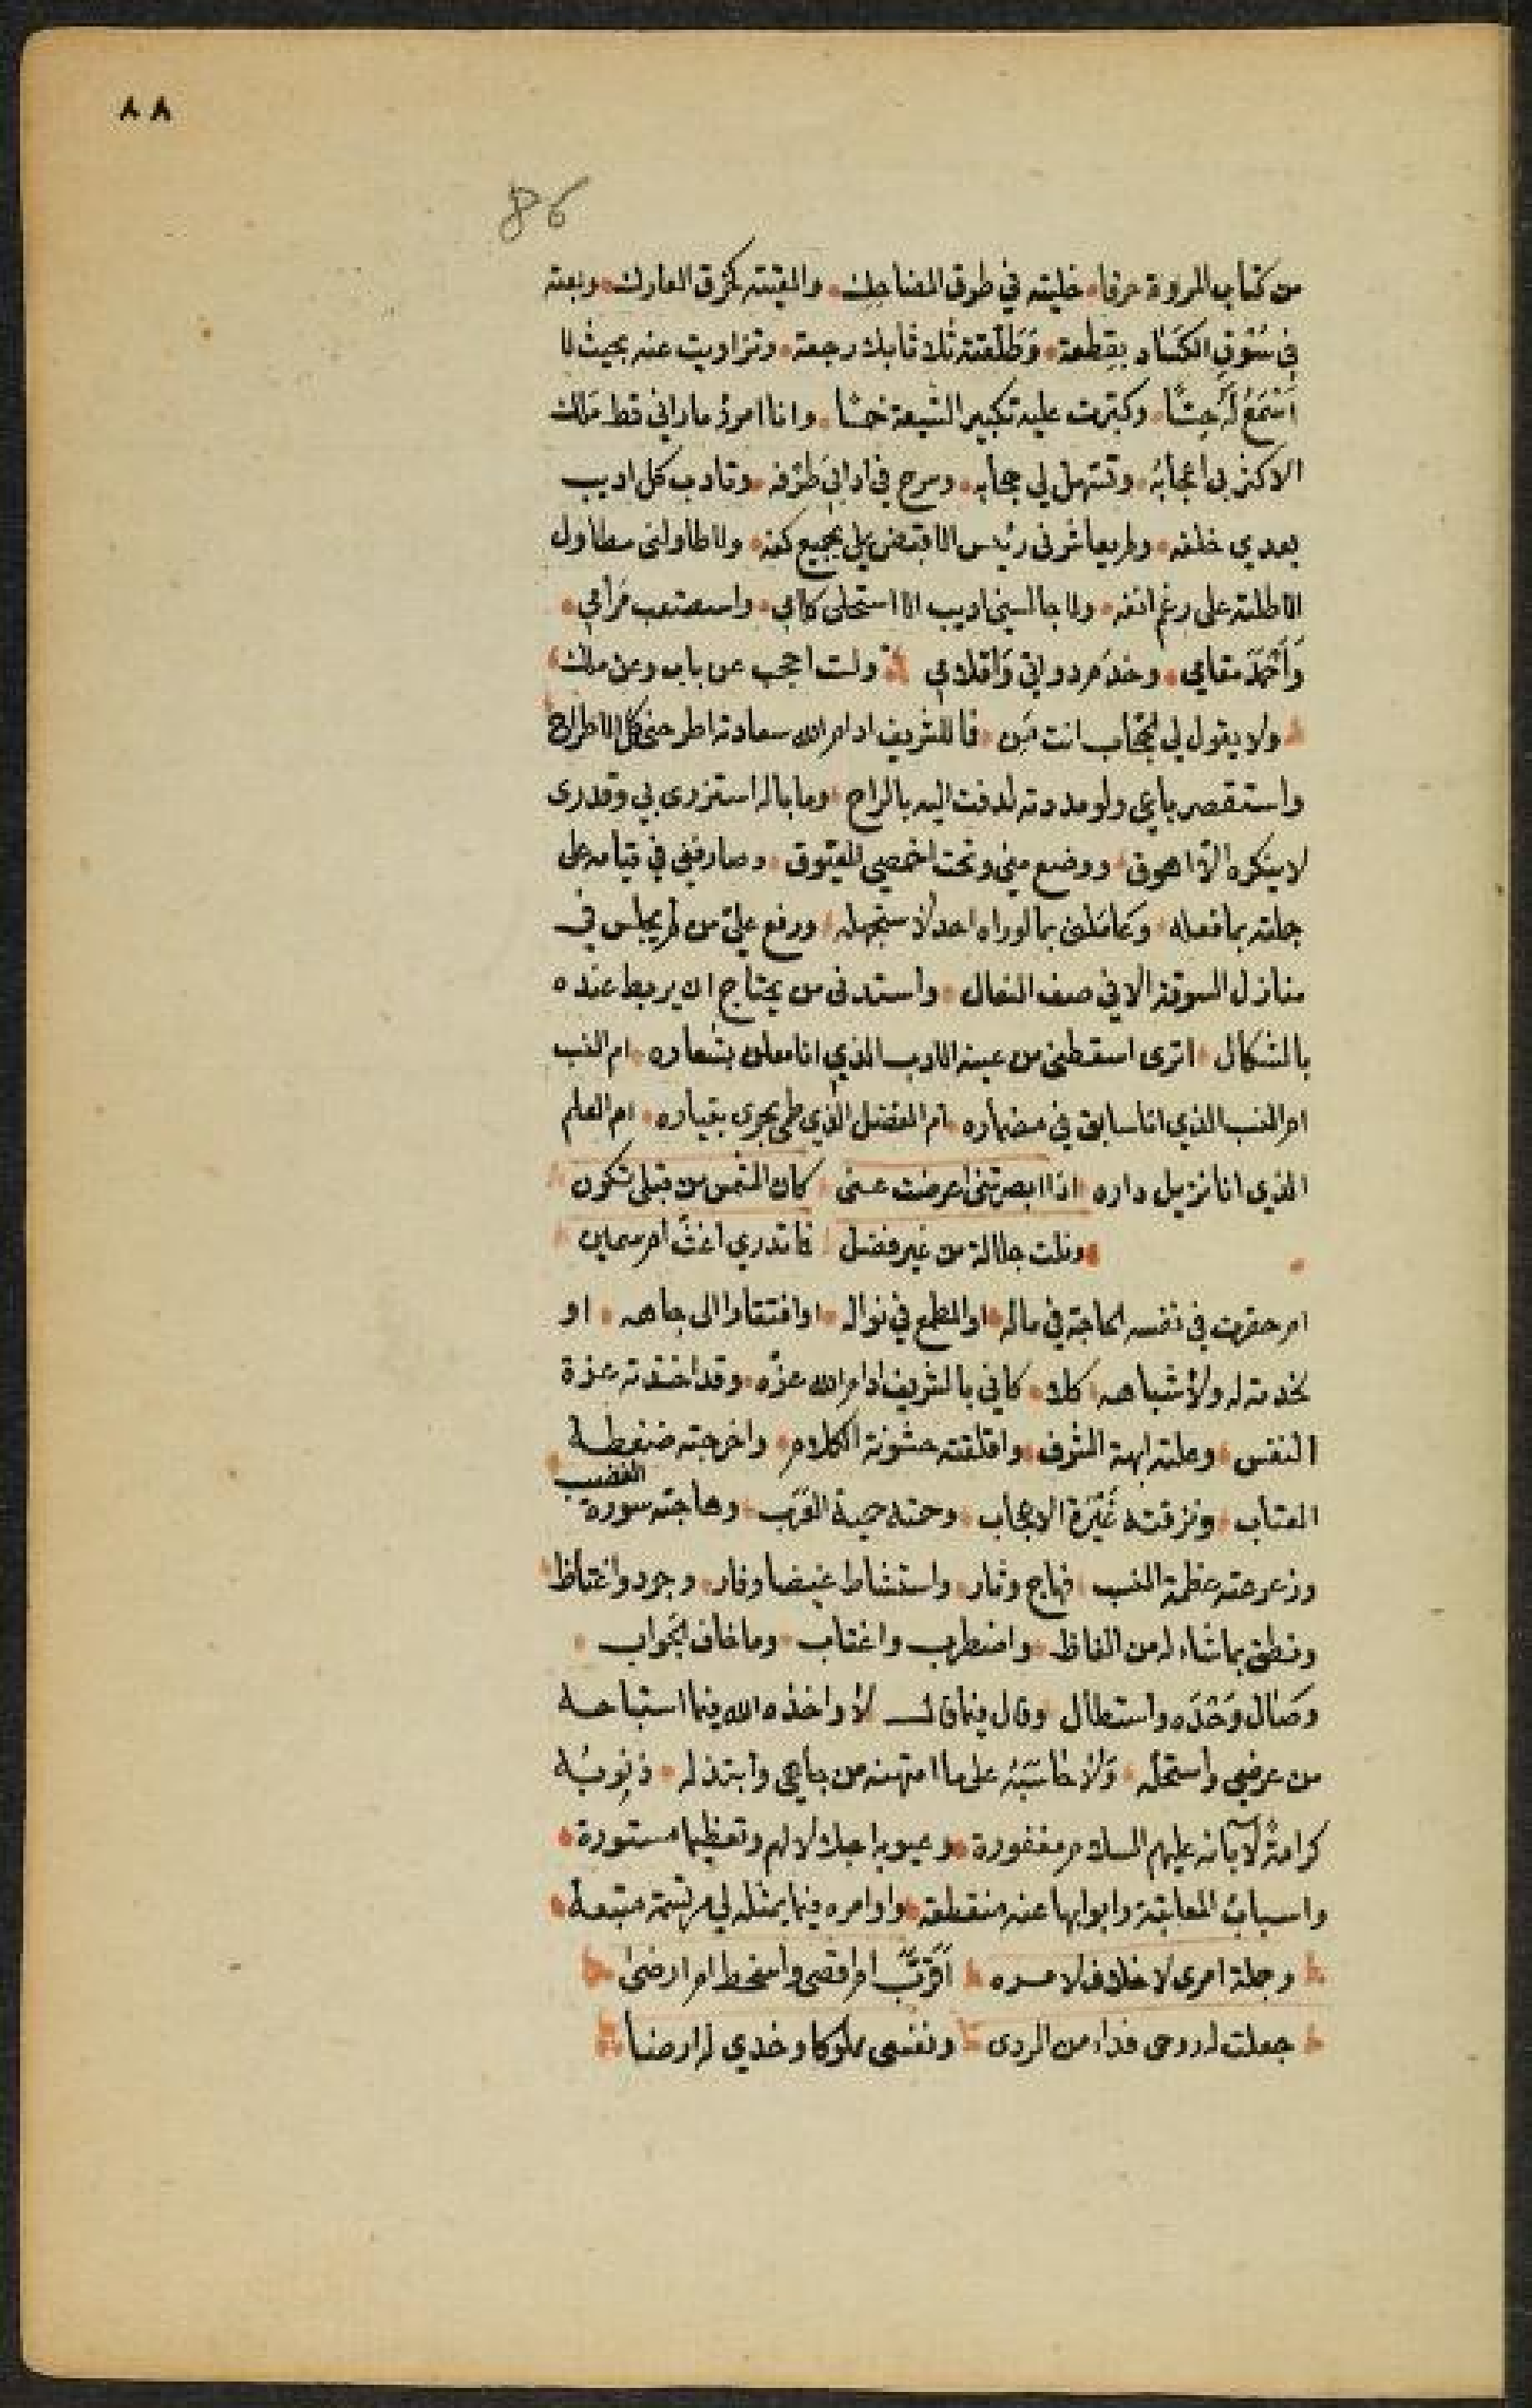 ٨٨
86
من كتاب المروة حرفا خليته في طوق المضاحك والقيته كخرق العارك وبعته
في سُوقِ الكَسَاد بقِطعة وَطَلّقته ثلاثا بلا رجعة وتزاويت عنه بحيث لا
أسْمَعُ لَهُ حِسًّا وكبّرت عليه تكبير الشيعة خمسًا وانا امرؤ ماراني قط ملك
الا كثر بي اعجابهُ وتسهل لي حجابه وسرح في ادابي طرفه وتادب كل اديب
بعدي خلفه ولم يعاشرني رئيس الا قبض علي بجميع كفه ولا طاولني مطاول
الا طلته على رغم انفه ولا جالسني اديب الا استحلى كلامي واستعذب مرامي
وَأحْمَدَ مقامي وخدم دواتي وَاقلامي ولست احجب عن باب وعن ملك
ولا يقول لي الحجّاب انت مَن فما للشريف ادام الله سعادته اطرحني كل الاطراح
واستقصر باعي ولو مددته لدفت اليه بالراح وما باله استزرى بي وقدري
لا ينكره الا اهوق ووضع مني وتحت اخمصي العيّوق وصارفني في قيامه على
جملته بما فعله وعَامَلني بما لوراه احد لاستجهله ورفع عليّ من لم يجلس في
منازل السوقة الا في صف النعال واستدنى من يحتاج ان يربط عنده
بالشكال اترى اسقطني من عينه الادب الذي انا معلن بشعاره ام النسب
ام النسب الذي انا سابق في مضماره ام الفضل الذي طمى بحرى بتياره ام العلم
الذي انا نزيل داره اذا ابصرتني اعرضت عني كان الشمس من قبلي تكون
ونلت جلالة من غير فضل فما تدري اغثّ ام سمين
ام حقرت في نفسه لحاجة في ماله او لطمع في نواله او افتقادا الى جاهه او
لخدمة له ولأشباهه كلا كاني بالشريف ادام الله عزّه وقد اخذته عزة
النفس وعلته ابهة الشرف واقلقته خشونة الكلام واخرجته ضغطة
العتاب ونزقته عَبْرَة الاعجاب وحمته حمية العَرَب وهاجته سورة الغضب
وزعزعته عظمة النسب فهاج وثار واستشاط غيضا وفار وجرد واغتاظ
ونطق بما شاء له من الفاظ واضطرب واغتاب وما خاف الجَواب
وَصَال وَحْدَه واستطال وقال فيما قال لا واخذه الله فيما استباحه
من عرضي واستحله وَلا حاسَبَهُ على ما امتهنه من جاهي وابتذله ذنوبُه
كرامةً لآبائه عليهم السلام مغفورة وعيوبه اجلالا لهم وتعظيما مستورة
واسبابُ المعاتبة وابوابها عنه منقطعة واوامره فيما يمثله لي مرتسمة متبعة
وجملة امرى لا خلاف لامره اَقَرَّبَ ام اقصى واسخط ام ارضى
جعلت له روحى فداء من الردى ونفسى مملوكا وخدي له ارضا